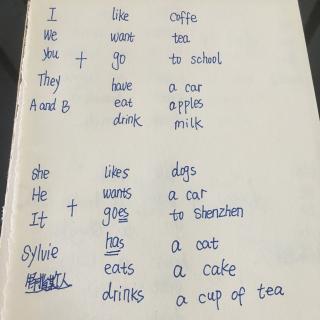 I like coffe
We want tea
you + go to school
They have a car
A and B eat apples
drink milk
she likes dogs
He wants a car
It + goes to Shenzhen
Sylvie has a cat
eats a cake
drinks a cup of tea